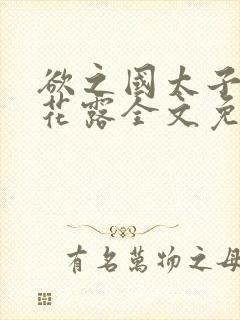 欲之國太子
花露全文免
有名萬物之母